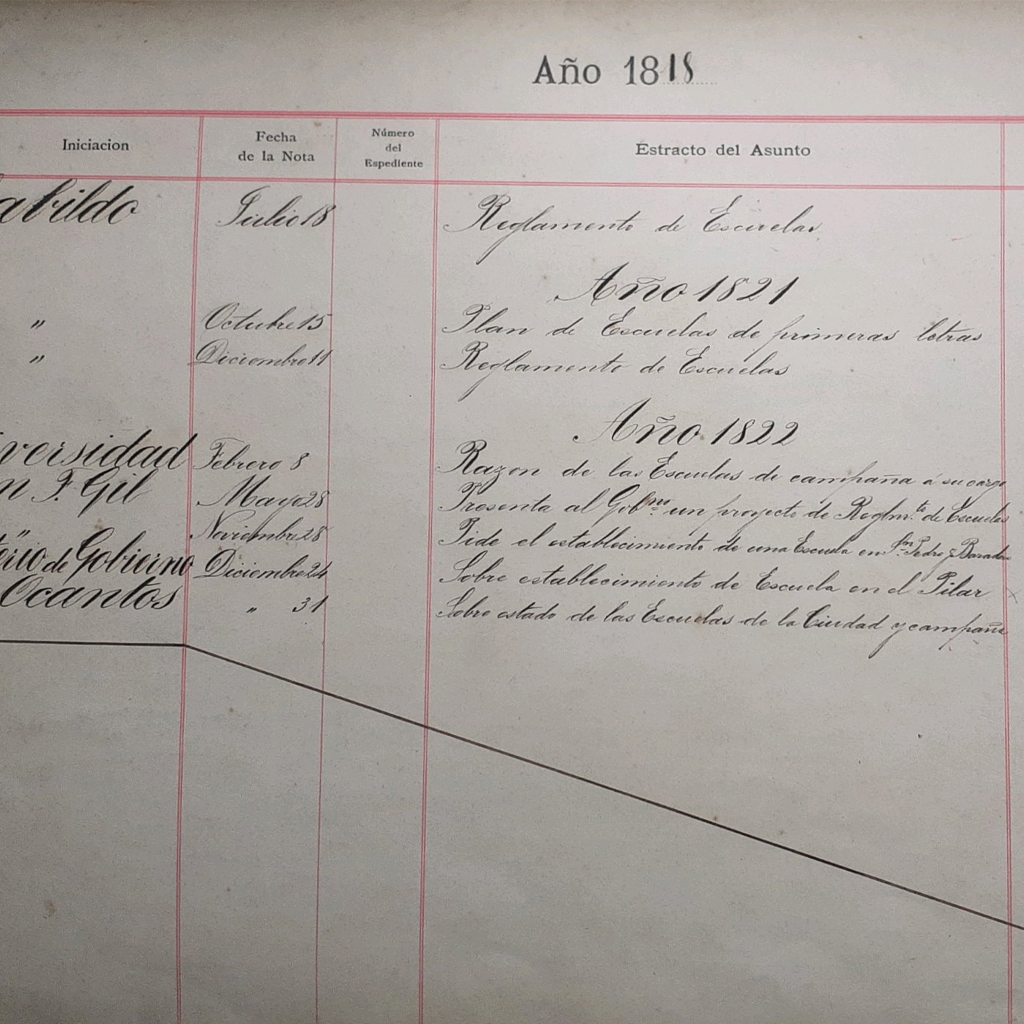 Año 1818
Iniciacion Fecha de la Nota Número del Espediente Estracto del Asunto
abildo Julio 18 Reglamento de Escuelas
Año 1821
" Octubre 15 Plan de Escuelas de primeras letras
" Diciembre 11 Reglamento de Escuelas
Año 1822
versidad Febrero 8 Razon de las Escuelas de campaña á su cargo
n F. Gil Mayo 28 Presenta al Gobno. un proyecto de Reglmto. de Escuelas
" Noviembre 28 Pide el establecimiento de una Escuela en Sn. Pedro y Baradero
terio de Gobierno Diciembre 24 Sobre establecimiento de Escuela en el Pilar
Ocantos " 31 Sobre estado de las Escuelas de la Ciudad y campaña